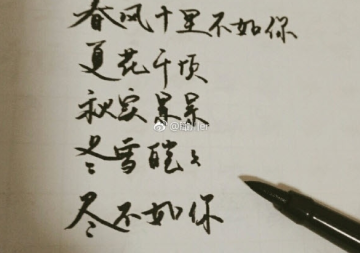 春风十里不如你
夏花千顷
秋实累累
冬雪皑々
尽不如你